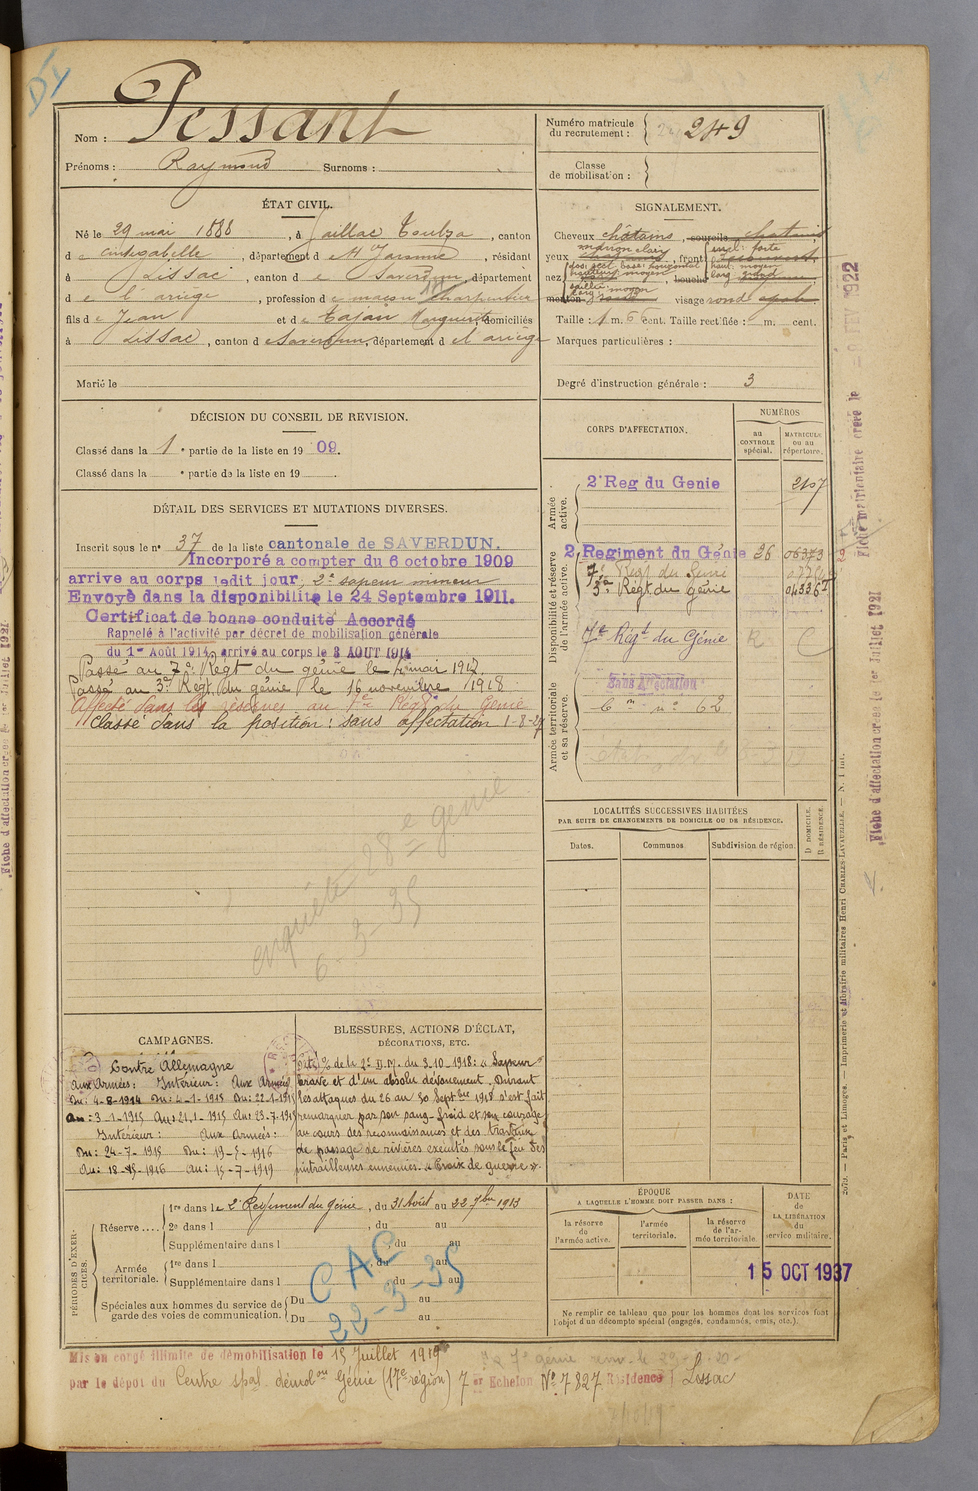 Nom : Pessant
Prénoms : Raymond Surnoms :
Numéro matricule du recrutement : 249
Classe de mobilisation :
ÉTAT CIVIL.
Né le 29 mai 1888, à Gaillac Toulza, canton
de cintegabelle, département de Hte Garonne, résidant
à Lissac, canton de Saverdun, département
de l'ariège, profession de maçon charpentier
fils de Jean et de Cajan Marguerite, domiciliés
à Lissac, canton de Saverdun, département de l'ariège
Marié le
SIGNALEMENT.
Cheveux châtains, sourcils chatains
yeux marron clair, front incl: forte
haut: moyen
nez dos rect base horizontal
hauteur: moyen
saillie
larg: moyen
bouche
menton visage rond
Taille : 1 m. 66 cent. Taille rectifiée : m. cent.
Marques particulières :
Degré d'instruction générale : 3
DÉCISION DU CONSEIL DE REVISION.
Classé dans la 1e partie de la liste en 1909.
Classé dans la e partie de la liste en 19
DÉTAIL DES SERVICES ET MUTATIONS DIVERSES.
Inscrit sous le n° 37 de la liste cantonale de SAVERDUN.
Incorporé a compter du 6 octobre 1909
arrive au corps ledit jour, 2e sapeur mineur
Envoyé dans la disponibilité le 24 Septembre 1911.
Certificat de bonne conduite Accordé
Rappelé à l'activité par décret de mobilisation générale
du 1er Août 1914, arrivé au corps le 3 AOUT 1914
Passé au 7e Régt du génie le 4 mai 1917.
Passé au 3e Régt du génie le 16 novembre 1918
Affecté dans les réserves au 7e Régt du Génie
Classé dans la position : sans affectation 1-8-27
enquête 28e génie
6-3-35
CORPS D'AFFECTATION.
NUMÉROS
au CONTROLE spécial.
MATRICULE ou au répertoire.
Armée active.
2e Reg du Genie 2107
Disponibilité et réserve de l'armée active.
2e Regiment du Génie 26 06373
7e Régt du Génie
3e Régt du génie 04336
7e Régt du Génie R C
Armée territoriale et sa réserve.
Sans Affectation
Cm n° 62
LOCALITÉS SUCCESSIVES HABITÉES
PAR SUITE DE CHANGEMENTS DE DOMICILE OU DE RÉSIDENCE.
Dates. Communes. Subdivision de région.
D DOMICILE.
R RÉSIDENCE.
CAMPAGNES.
Contre Allemagne
aux Armées : Intérieur : Aux Armées
Du : 4-8-1914 Du : 4-1-1915 Du : 22-1-1915
Au : 3-1-1915 Au : 21-1-1915 Au : 23-7-1915
Intérieur : Aux Armées :
Du : 24-7-1915 Du : 19-5-1916
Au : 18-5-1916 au : 15-7-1919
BLESSURES, ACTIONS D'ÉCLAT,
DÉCORATIONS, ETC.
Cité % de la 2e D.M. du 3-10-1918 : « Sapeur
brave et d'un absolu dévouement. Durant
les attaques du 26 au 30 Septbre 1918 s'est fait
remarquer par son sang-froid et son courage
au cours des reconnaissances et des travaux
de passage de rivières exécutés sous le feu des
mitrailleuses ennemies. » Croix de guerre ».
PÉRIODES D'EXERCICES.
Réserve....
1re dans le 2e Régiment du génie, du 31 Août au 22 7bre 1913
2e dans l , du au
Supplémentaire dans l , du au
Armée territoriale.
1re dans l , du au
Supplémentaire dans l , du au
Spéciales aux hommes du service de garde des voies de communication.
Du au
Du au
CAC
22-3-35
ÉPOQUE
A LAQUELLE L'HOMME DOIT PASSER DANS :
la réserve de l'armée active.
l'armée territoriale.
la réserve de l'armée territoriale.
DATE de LA LIBÉRATION du service militaire.
15 OCT 1937
Ne remplir ce tableau que pour les hommes dont les services font
l'objet d'un décompte spécial (engagés, condamnés, omis, etc.).
Mis en congé illimité de démobilisation le 15 Juillet 1919
par le dépôt du Centre spal démolon Génie (17e région) 7er Echelon N° 7827 Résidence Lissac
Fiche matriculaire créée le FEV 1922
Fiche d'affectation créée le 1er Juillet 1921
2079. — Paris et Limoges. — Imprimerie et librairie militaires Henri CHARLES-LAVAUZELLE. — N. 1 int.